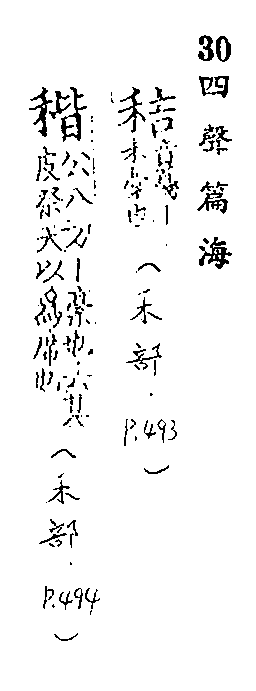 30四聲篇海
秸
音戛｜
(禾部.P.493)
稭
公八切｜藁也去其
皮祭天以為席也
(禾部.P.494)